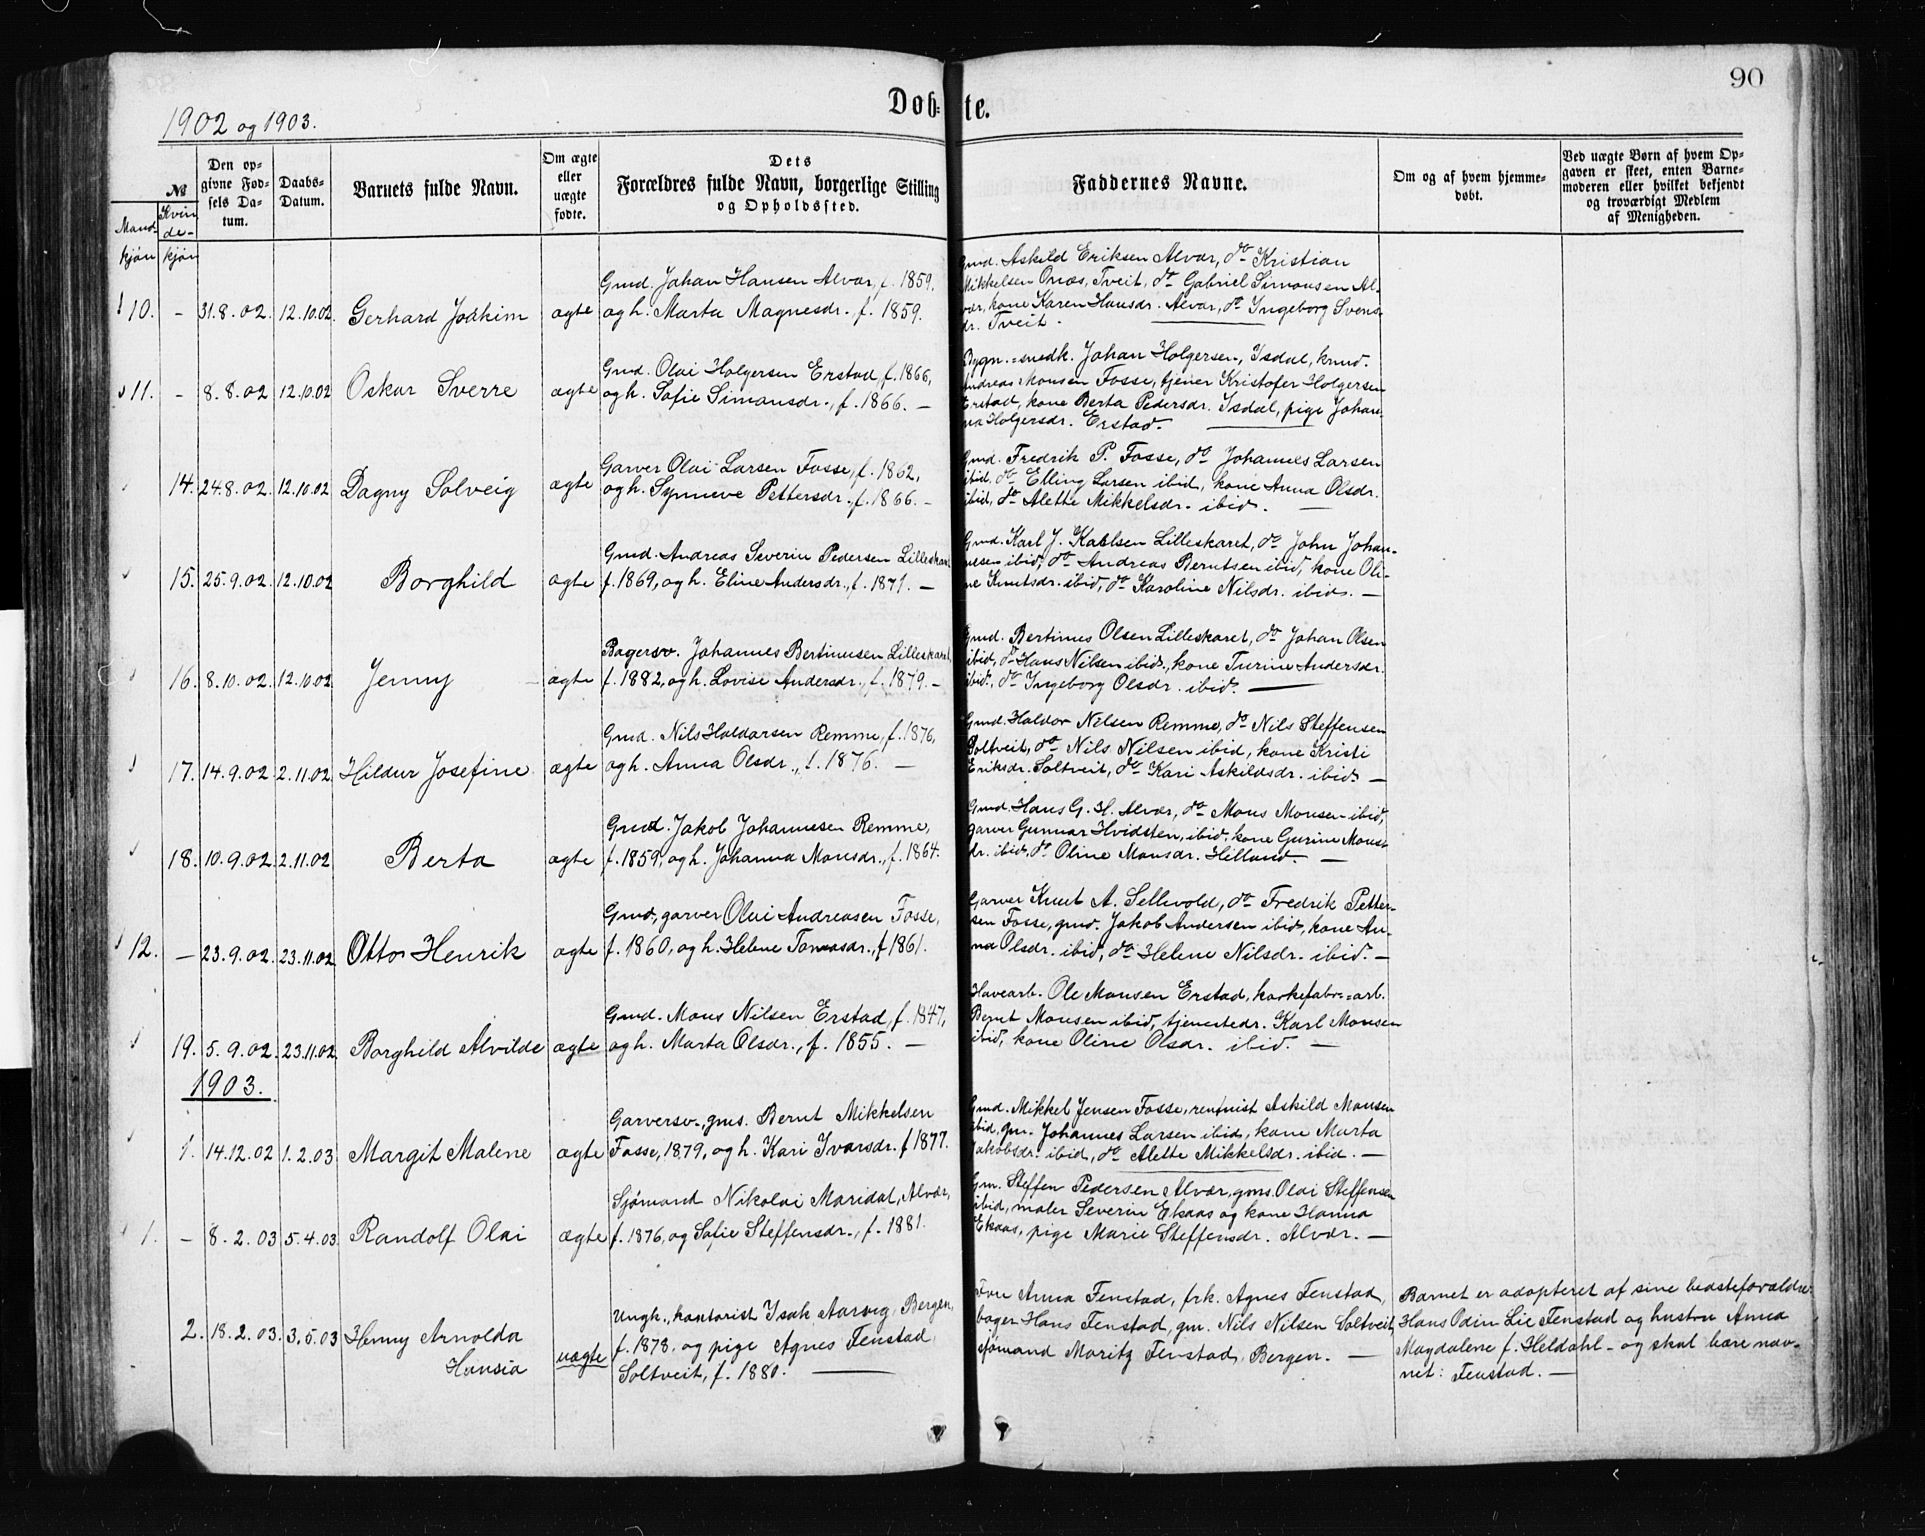 90
Døb= te.
1902 og 1903.
№
Mand-
kjøn
Kvin
de-
kjøn
Den op-
givne Fød-
sels Da-
tum.
Daabs-
Datum.
Barnets fulde Navn.
Om ægte
eller
uægte
fødte.
Dets
Forældres fulde Navn, borgerlige Stilling
og Opholdssted.
Faddernes Navne.
Om og af hvem hjemme-
døbt.
Ved uægte Børn af hvem Op-
gaven er skeet, enten Barne-
moderen eller hvilket bekjendt
og troværdigt Medlem
af Menigheden.
10. - 31.8.02. 12.10.02. Gerhard Joakim ægte
Gmd. Johan Hansen Alvær, f. 1859.
og h. Marta Magnesdr., f. 1859.
Gmd. Askild Eriksen Alvær, do Kristian
Mikkelsen Onæs, Tveit, do Gabriel Simonsen Al-
vær, kone Karen Hansdr. Alvær, do Ingeborg Svens-
dr. Tveit.
11. - 8.8.02 12.10.02 Oskar Sverre ægte
Gmd. Olai Holgersen Erstad, f. 1866,
og h. Sofie Simonsdr., f. 1866. -
Bygn.=snedk. Johan Holgersen, Isdal, kmd.
Andreas Monsen Fosse, tjener Kristofer Holgersen
Erstad, kone Berta Pedersdr. Isdal, pige Johan-
na Holgersdr. Erstad.
14. 24.8.02. 12.10.02 Dagny Solveig ægte
Garver Olai Larsen Fosse, f. 1862,
og h. Synneve Pettersdr., f. 1866. -
Gmd. Fredrik P. Fosse, do Johannes Larsen
ibid, do Elling Larsen ibid, kone Anna Olsdr.
ibid, do Alette Mikkelsdr. ibid. -
15. 25.9.02. 12.10.02 Borghild ægte
Gmd. Andreas Severin Pedersen Lilleskaret
f. 1869, og h. Eline Andersdr., f. 1871. -
Gmd. Karl J. Karlsen Lilleskaret, do John Johan-
nesen ibid, do Andreas Berntsen ibid, kone Oli-
ne Knutsdr. ibid, do Karoline Nilsdr. ibid. -
16. 8.10.02. 12.10.02 Jenny - ægte
Bagersv. Johannes Bertinusen Lilleskaret,
f. 1882, og h. Lovise Andersdr., f. 1879. -
Gmd. Bertinus Olsen Lilleskaret, do Johan Olsen
ibid, do Hans Nilsen ibid., kone Turine Andersdr.
ibid., do Ingeborg Olsdr. ibid. -
17. 14.9.02 2.11.02 Hildur Josefine ægte
Gmd. Nils Haldorsen Remme, f. 1876,
og h. Anna Olsdr., f. 1876. -
Gmd. Haldor Nilsen Remme, do Nils Steffensen
Soltveit, do Nils Nilsen ibid, kone Kristi
Eriksdr. Soltveit, do Kari Askildsdr. ibid. -
18. 10.9.02 2.11.02 Berta ægte
Gmd. Jakob Johannesen Remme,
f. 1859, og h. Johanna Monsdr., f. 1864.
Gmd. Hans G. H. Alvær, do Mons Monsen ibid,
garver Gunnar Hvidsten, ibid, kone Gurine Mons-
dr. ibid, do Oline Monsdr. Hilland. -
12. - 23.9.02. 23.11.02 Otto Henrik ægte
Gmd., garver Olai Andreasen Fosse,
f. 1860, og h. Helene Tomasdr., f 1861.
Garver Knut A. Sellevold, do Fredrik Petter-
sen Fosse, gmd. Jakob Andersen ibid, kone An-
na Olsdr. ibid, do Helene Nilsdr. ibid. -
19. 5.9.02. 23.11.02. Borghild Alvilde ægte
Gmd. Mons Nilsen Erstad, f. 1847,
og h. Marta Olsdr., f. 1855. -
Havearb. Ole Monsen Erstad, korkefabr.=arb.
Bernt Monsen ibid, tjenestedr. Karl Monsen
ibid, kone Oline Olsdr. ibid. -
1903.
1. 14.12.02 1.2.03 Margit Malene ægte
Garversv., gms. Bernt Mikkelsen
Fosse, 1879, og h. Kari Ivarsdr. f 1877.
Gmd. Mikkel Jensen Fosse, Askild Monsen
ibid, gm. Johannes Larsen ibid, kone Marta
Jakobsdr. ibid, do Alette Mikkelsdr. ibid. -
1. - 8.2.03 5.4.03 Randolf Olai ægte
Sjømand Nikolai Maridal, Alvær,
f. 1876, og Sofie Steffensdr., f. 1881.
Gm. Steffen Pedersen Alvær, gms. Olai Steffensen
ibid, maler Severin Ekaas og kone Hanna
Ekaas, pige Marie Steffensdr. Alvær. -
2. 18.2.03. 3.5.03 Henny Arnolda
Hansia
uægte
Ungk., kontorist Isak Aarvig, Bergen,
f. 1878, og pige Agnes Fenstad,
Soltveit, f. 1880. -
Fru Anna Fenstad, frk. Agnes Fenstad,
bager Hans Fenstad, gm. Nils Nilsen Soltveit,
sjømand Moritz Fenstad, Bergen. -
Barnet er adopteret af sine bedsteforældre
Hans Odin Lie Fenstad og hustru Anna
Magdalene f. Heldahl - og skal bære nav-
net: Fenstad. -